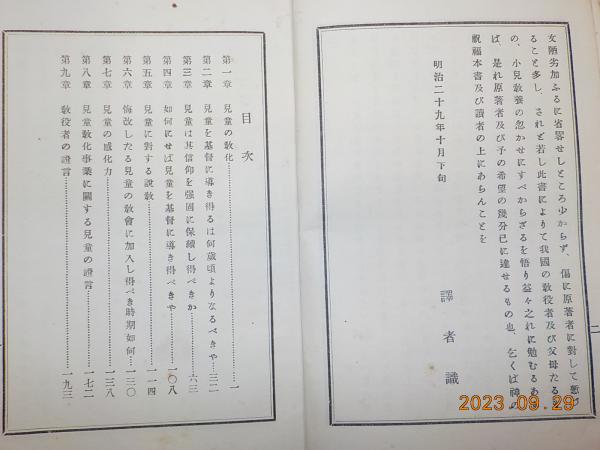 文陋劣加ふるに省畧せしところ少からず、傷に原著者に對して慙づ
ること多し、されど若し此書によりて我國の敎役者及び父母たるも
の、小兒敎養の忽かせにすべからざるを悟り益々之れに勉むるあら
ば、是れ原著者及び予の希望の幾分已に達せるもの也、乞くば神の
祝福本書及び讀者の上にあらんことを
明治二十九年十月下旬
譯者識
二
目次
第一章 兒童の敎化……一
第二章 兒童を基督に導き得るは何歲頃よりなるべきや……三二
第三章 兒童は其信仰を强固に保續し得べきか……六三
第四章 如何にせば兒童を基督に導き得べきや……一〇八
第五章 兒童に對する說敎……一一四
第六章 悔改したる兒童の敎會に加入し得べき時期如何……一三〇
第七章 兒童の感化力……一三八
第八章 兒童敎化事業に關する兒童の證言……一七二
第九章 敎役者の證言……一九三
2023 09 29